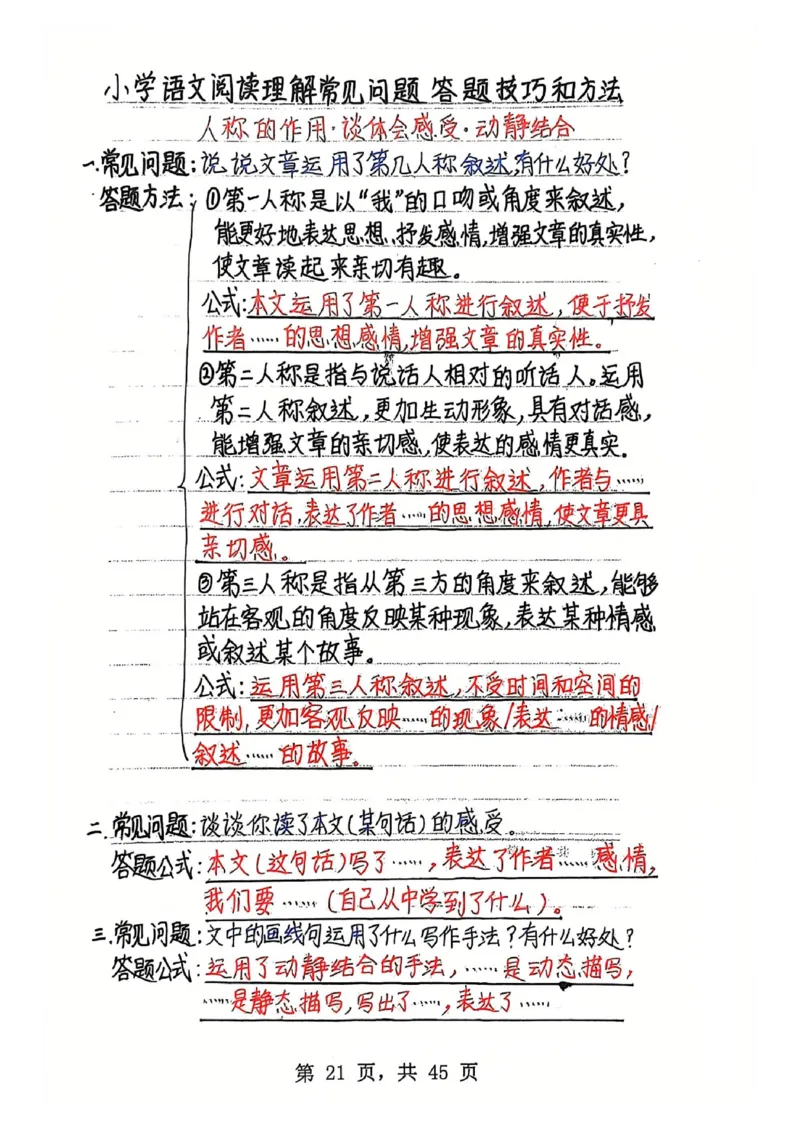 小学语文阅读理解常见问题 答题技巧和方法
人称的作用·谈体会感受·动静结合
一.常见问题:说说文章运用了第几人称叙述,有什么好处?
答题方法:①第一人称是以“我”的口吻或角度来叙述,
能更好地表达思想、抒发感情,增强文章的真实性,
使文章读起来亲切有趣。
公式:本文运用了第一人称进行叙述,便于抒发
作者……的思想感情,增强文章的真实性。
②第二人称是指与说话人相对的听话人。运用
第二人称叙述,更加生动形象,具有对话感,
能增强文章的亲切感,使表达的感情更真实.
公式:文章运用第二人称进行叙述,作者与……
进行对话,表达了作者……的思想感情,使文章更具
亲切感。
③第三人称是指从第三方的角度来叙述,能够
站在客观的角度反映某种现象,表达某种情感
或叙述某个故事。
公式:运用第三人称叙述,不受时间和空间的
限制,更加客观反映……的现象/表达……的情感/
叙述……的故事。
二.常见问题:谈谈你读了本文(某句话)的感受。
答题公式:本文(这句话)写了……,表达了作者……感情,
我们要……(自己从中学到了什么)。
三.常见问题:文中的画线句运用了什么写作手法?有什么好处?
答题公式:运用了动静结合的手法,……是动态描写,
……是静态描写,写出了……,表达了……
第 21 页，共 45 页